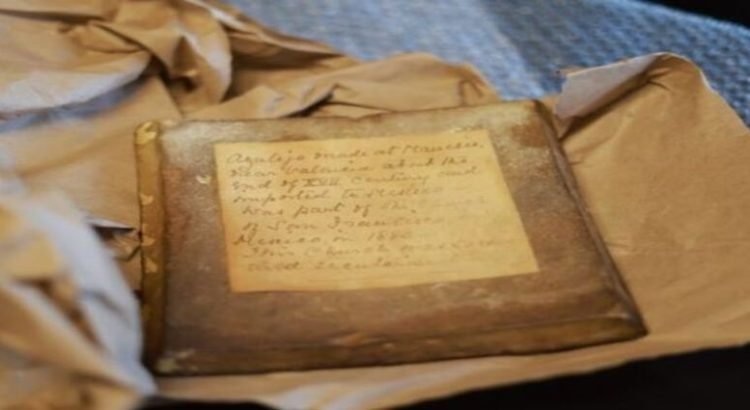 Azulejo made at Manises,
near Valencia about the
End of XVII Century and
imported to Mexico
Was part of the
of San Francisco
Mexico, in 16
This Church was